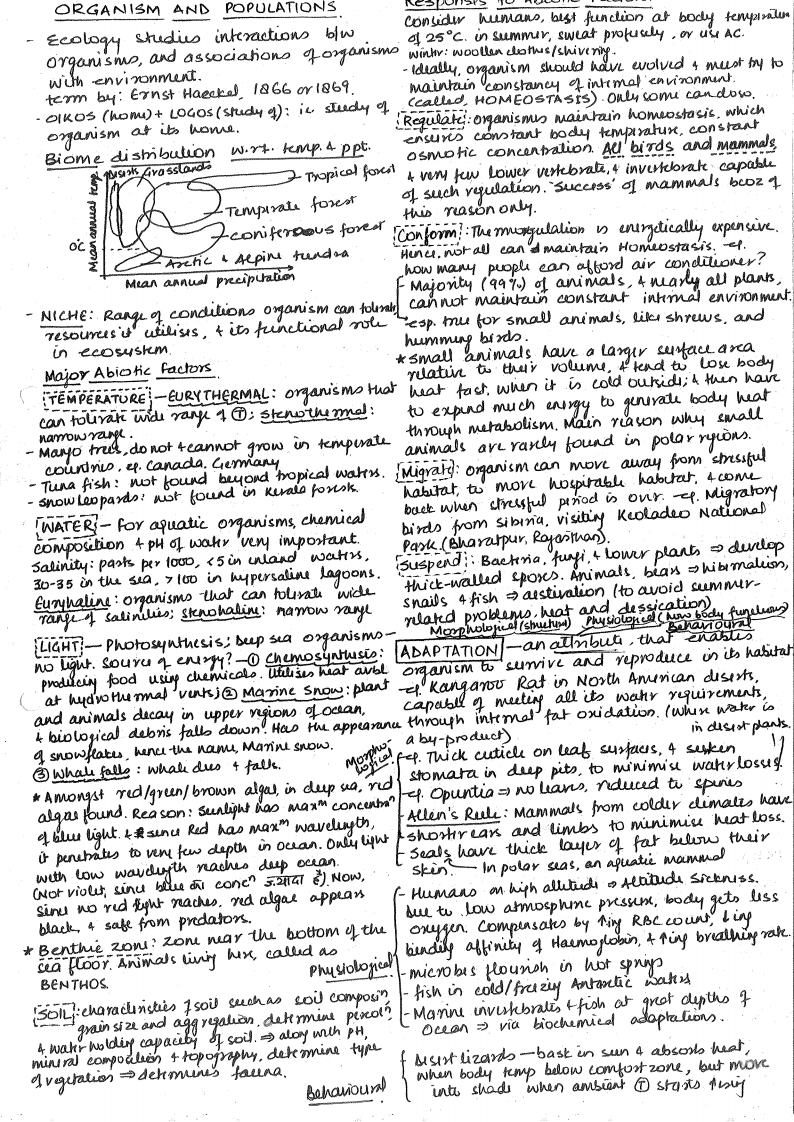 ORGANISM AND POPULATIONS
- Ecology studies interactions b/w
organisms, and associations of organisms
with environment.
term by: Ernst Haeckel, 1866 or 1869.
- OIKOS (home) + LOGOS (study of): ie study of
organism at its home.
Biome distribution w.r.t. temp. & ppt.
Deserts Grasslands
Tropical forest
Temperate forest
Coniferous forest
Arctic & Alpine tundra
0°C
Mean annual temp.
Mean annual precipitation
- NICHE: Range of conditions organism can tolerate,
resources it utilises, & its functional role
in ecosystem.
Major Abiotic Factors
TEMPERATURE — EURYTHERMAL: organisms that
can tolerate wide range of Ⓣ; Stenothermal:
narrow range.
- Mango trees, do not & cannot grow in temperate
countries, eg. Canada, Germany
- Tuna fish: not found beyond tropical waters.
- Snow leopards: not found in Kerala forests.
WATER — For aquatic organisms, chemical
composition & pH of water very important.
Salinity: parts per 1000, <5 in inland waters,
30-35 in the sea, >100 in hypersaline lagoons.
Euryhaline: organisms that can tolerate wide
range of salinities; stenohaline: narrow range
LIGHT — Photosynthesis; Deep sea organisms —
no light. Source of energy? — ① Chemosynthesis:
producing food using chemicals. Utilises heat avbl
at hydrothermal vents; ② Marine Snow: plant
and animals decay in upper regions of ocean,
& biological debris falls down. Has the appearance
of snowflakes, hence the name, Marine snow.
③ Whale falls: whale dies & falls.
* Amongst red/green/brown algae, in deep sea, red
algae found. Reason: Sunlight has maxm concentrn
of blue light. & since Red has maxm wavelength,
it penetrates to very few depth in ocean. Only light
with low wavelength reaches deep ocean.
(Not violet, since blue का concn ज़्यादा है). Now,
since no red light reaches, red algae appears
black, & safe from predators.
* Benthic zone: zone near the bottom of the
sea floor. Animals living here, called as
BENTHOS.
SOIL: characteristics of soil such as soil composin,
grain size and aggregation, determine percoln
& water holding capacity of soil. ⇒ along with pH,
mineral composition & topography, determine type
of vegetation ⇒ determines fauna.
Responses to Abiotic Factors:
Consider humans, best function at body temperature
of 25°C. in summer, sweat profusely, or use AC.
winter: woollen clothes/shivering.
- Ideally, organism should have evolved & must try to
maintain constancy of internal environment.
(called, HOMEOSTASIS). Only some can do so.
Regulate: organisms maintain homeostasis, which
ensures constant body temperature, constant
osmotic concentration. All birds and mammals,
& very few lower vertebrate, & invertebrate capable
of such regulation. 'Success' of mammals bcoz of
this reason only.
Conform: Thermoregulation is energetically expensive.
Hence, not all can maintain Homeostasis. eg.
how many people can afford air conditioner?
Majority (99%) of animals, & nearly all plants,
cannot maintain constant internal environment.
esp. true for small animals, like shrews, and
humming birds.
* small animals have a larger surface area
relative to their volume, & tend to lose body
heat fast, when it is cold outside; & then have
to expend much energy to generate body heat
through metabolism. Main reason why small
animals are rarely found in polar regions.
Migrate: organism can move away from stressful
habitat, to more hospitable habitat, & come
back when stressful period is over. eg. Migratory
birds from Siberia, visiting Keoladeo National
Park (Bharatpur, Rajasthan).
Suspend: Bacteria, fungi, & lower plants ⇒ develop
thick-walled spores. Animals, bears ⇒ hibernation,
snails & fish ⇒ aestivation (to avoid summer-
related problems, heat and dessication)
Morphological (structure) Physiological (how body functions)
Behavioural
ADAPTATION — an attribute, that enables
organism to survive and reproduce in its habitat
eg. Kangaroo Rat in North American deserts,
capable of meeting all its water requirements,
through internal fat oxidation. (where water is
a by-product)
in desert plants.
Morphological
eg. Thick cuticle on leaf surfaces, & sunken
stomata in deep pits, to minimise water losses.
eg. Opuntia ⇒ no leaves, reduced to spines
- Allen's Rule: Mammals from colder climates have
shorter ears and limbs to minimise heat loss.
Seals have thick layer of fat below their
skin. In polar seas, an aquatic mammal
Physiological
- Humans on high altitude ⇒ Altitude Sickness.
Due to low atmospheric pressure, body gets less
oxygen. Compensates by ↑ing RBC count, ↓ing
binding affinity of Haemoglobin, & ↑ing breathing rate.
- microbes flourish in hot springs
- fish in cold/freezing Antarctic waters
- Marine invertebrates & fish at great depths of
Ocean ⇒ via biochemical adaptations.
Behavioural
Desert lizards — bask in sun & absorbs heat,
when body temp below comfort zone, but move
into shade when ambient Ⓣ starts ↑sing